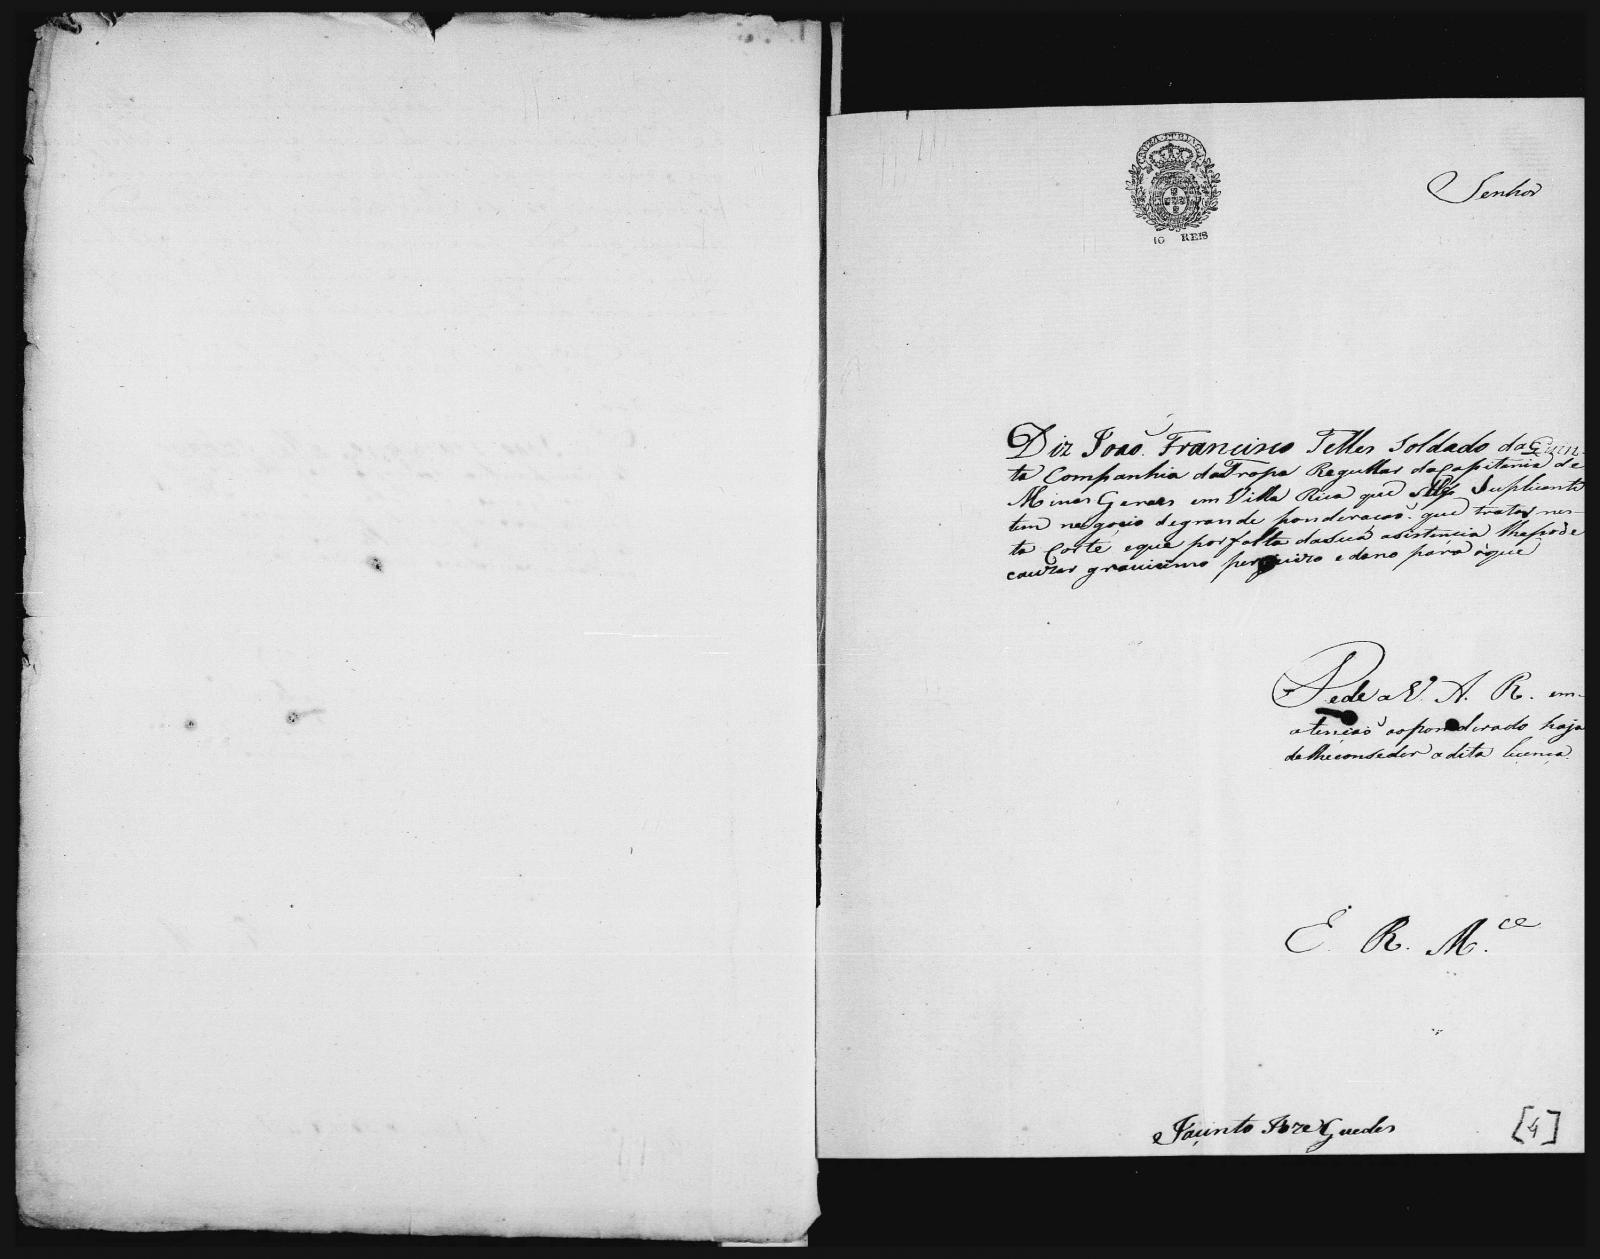 CAUZA PUBLICA
10 REIS
Senhor
Diz Joaõ Francisco Telles Soldado da Quin-
ta Companhia da Tropa Regullar da Capitania de
Minas Geraes em Villa Rica que elle Suplicante
tem negocio degrande ponderacaõ que tratar nes-
ta Corte eque porfalta dasua asistencia lhepode
cauzar gravisimo perjuizo edano para oque
Pede a V. A. R. em
atençaõ aoponderado haja
delheconseder adita licença.
E. R. M.ce
Jacinto Joze Guedes
[4]